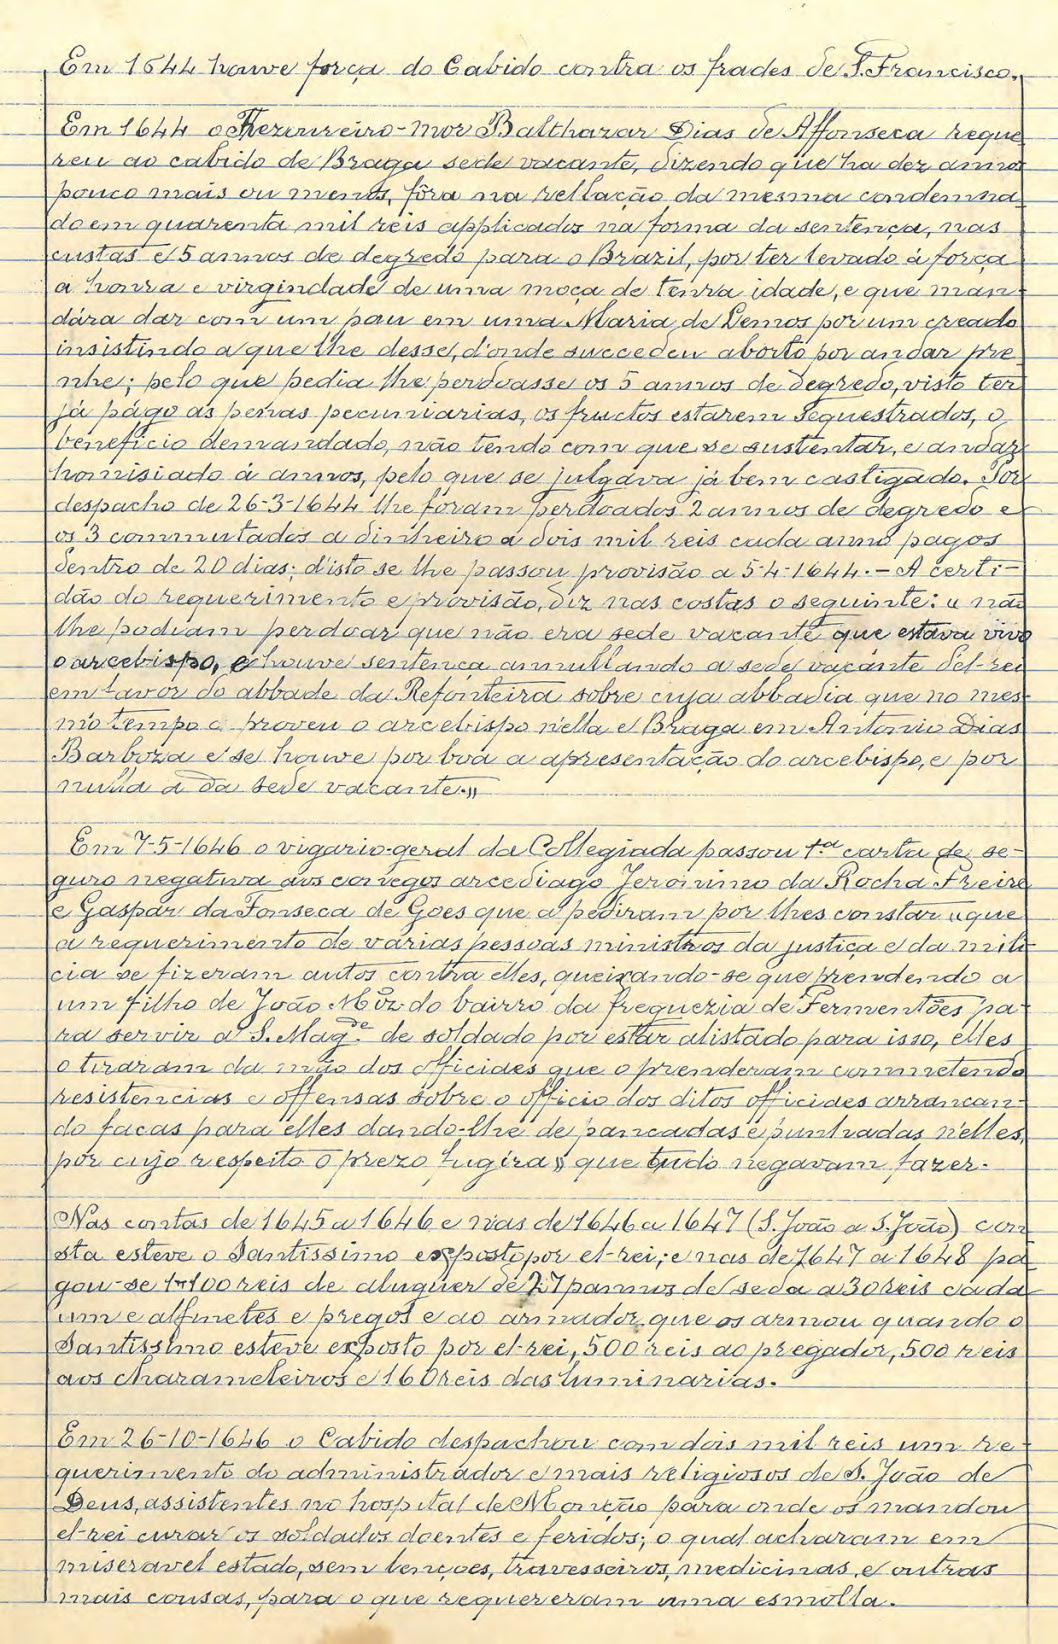 Em 1644 houve força do Cabido contra os frades de S. Francisco.
Em 1644 o Thezoureiro-mor Balthazar Dias de Affonseca reque
reu ao cabido de Braga sede vacante, dizendo que ha dez annos
pouco mais ou menos, fôra na rellação da mesma condemna
do em quarenta mil reis applicados na forma da sentença, nas
custas e 5 annos de degredo para o Brazil, por ter levado á força
a honra e virgindade de uma moça de tenra idade, e que man-
dára dar com um pau em uma Maria de Lemos por um creado
insistindo a que lhe desse, d'onde succedeu aborto por andar pre
nhe; pelo que pedia lhe perdoasse os 5 annos de degredo, visto ter
já págo as penas pecuniarias, os fructos estarem sequestrados, o
beneficio demandado, não tendo com que se sustentar, e andar
homisiado á annos, pelo que se julgava já bem castigado. Por
despacho de 26-3-1644 lhe foram perdoados 2 annos de degredo e
os 3 commutados a dinheiro a dois mil reis cada anno pagos
dentro de 20 dias; d'isto se lhe passou provisão a 5-4-1644. - A certi-
dão do requerimento e provisão, diz nas costas o seguinte: « não
lhe podiam perdoar que não era sede vacante que estava vivo
o arcebispo, e houve sentença annullando a sede vacante d'el-rei
em favor do abbade da Refonteira sobre cuja abbadia que no mes-
mo tempo a proveu o arcebispo n'ella e Braga em Antonio Dias
Barboza e se houve por boa a apresentação do arcebispo, e por
nulla a da sede vacante.»
Em 7-5-1646 o vigario-geral da Collegiada passou 1.ª carta de se-
guro negativa aos conegos arcediago Jeronimo da Rocha Freire
e Gaspar da Fonseca de Goes que a pediram por lhes constar « que
a requerimento de varias pessoas ministros da justiça e da mili-
cia se fizeram autos contra elles, queixando-se que prendendo a
um filho de João Miz do bairro da freguezia de Fermentões pa-
ra servir a S. Mag.de de soldado por estar alistado para isso, elles
o tiraram da mão dos officiaes que o prenderam commetendo
resistencias e offensas sobre o officio dos ditos officiaes arrancan-
do facas para elles dando-lhe de pancadas e punhadas n'elles,
por cujo respeito o prezo fugira» que tudo negavam fazer.
Nas contas de 1645 a 1646 e nas de 1646 a 1647 (S. João a S. João) con
sta esteve o Santissimo exposto por el-rei; e nas de 1647 a 1648 pa
gou-se 1100 reis de aluguer de 27 pannos de seda a 30 reis cada
um e alfinetes e pregos e ao armador que os armou quando o
Santissimo esteve exposto por el-rei, 500 reis ao pregador, 500 reis
aos charameleiros e 160 reis das luminarias.
Em 26-10-1646 o Cabido despachou com dois mil reis um re-
querimento do administrador e mais religiosos de S. João de
Deus, assistentes no hospital de Monção para onde os mandou
el-rei curar os soldados doentes e feridos; o qual acharam em
miseravel estado, sem lençoes, travesseiros, medicinas, e outras
mais cousas, para o que requereram uma esmolla.